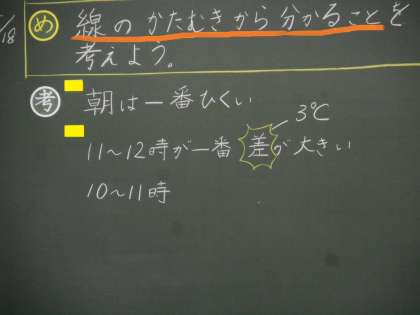 /18
め 線のかたむきから分かることを
考えよう。
考 朝は一番ひくい
3℃
11～12時が一番差が大きい
10～11時